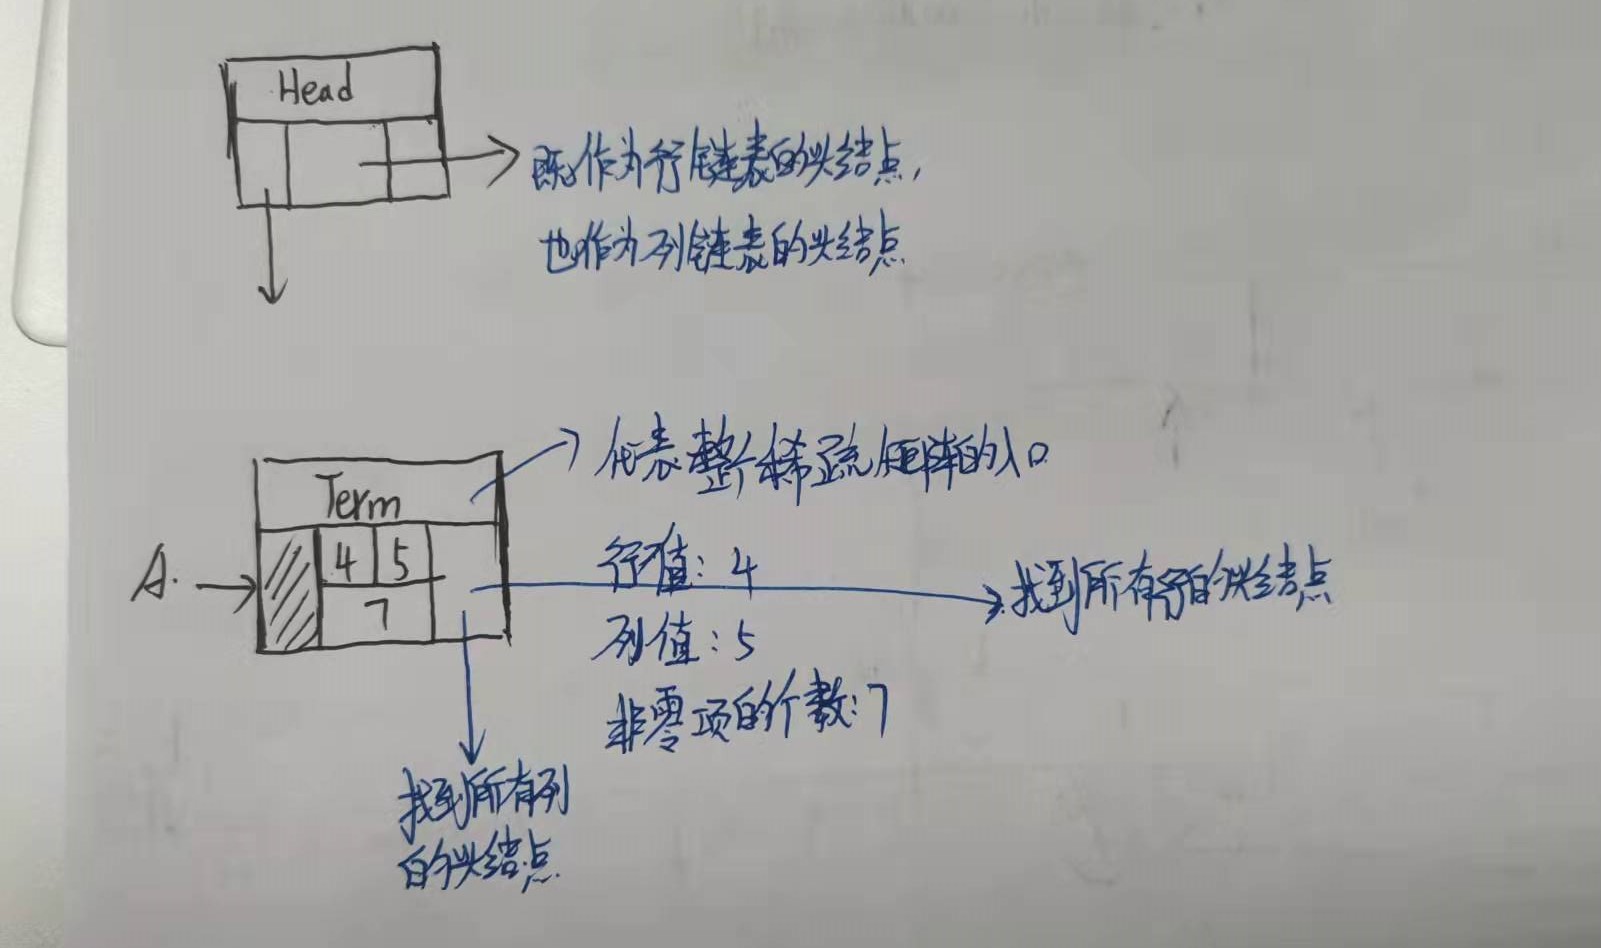 Head
既作为行链表的头结点,
也作为列链表的头结点
代表整个稀疏矩阵的入口
Term
A.
4 5
7
行值: 4
找到所有行的头结点
列值: 5
非零项的个数: 7
找到所有列
的头结点